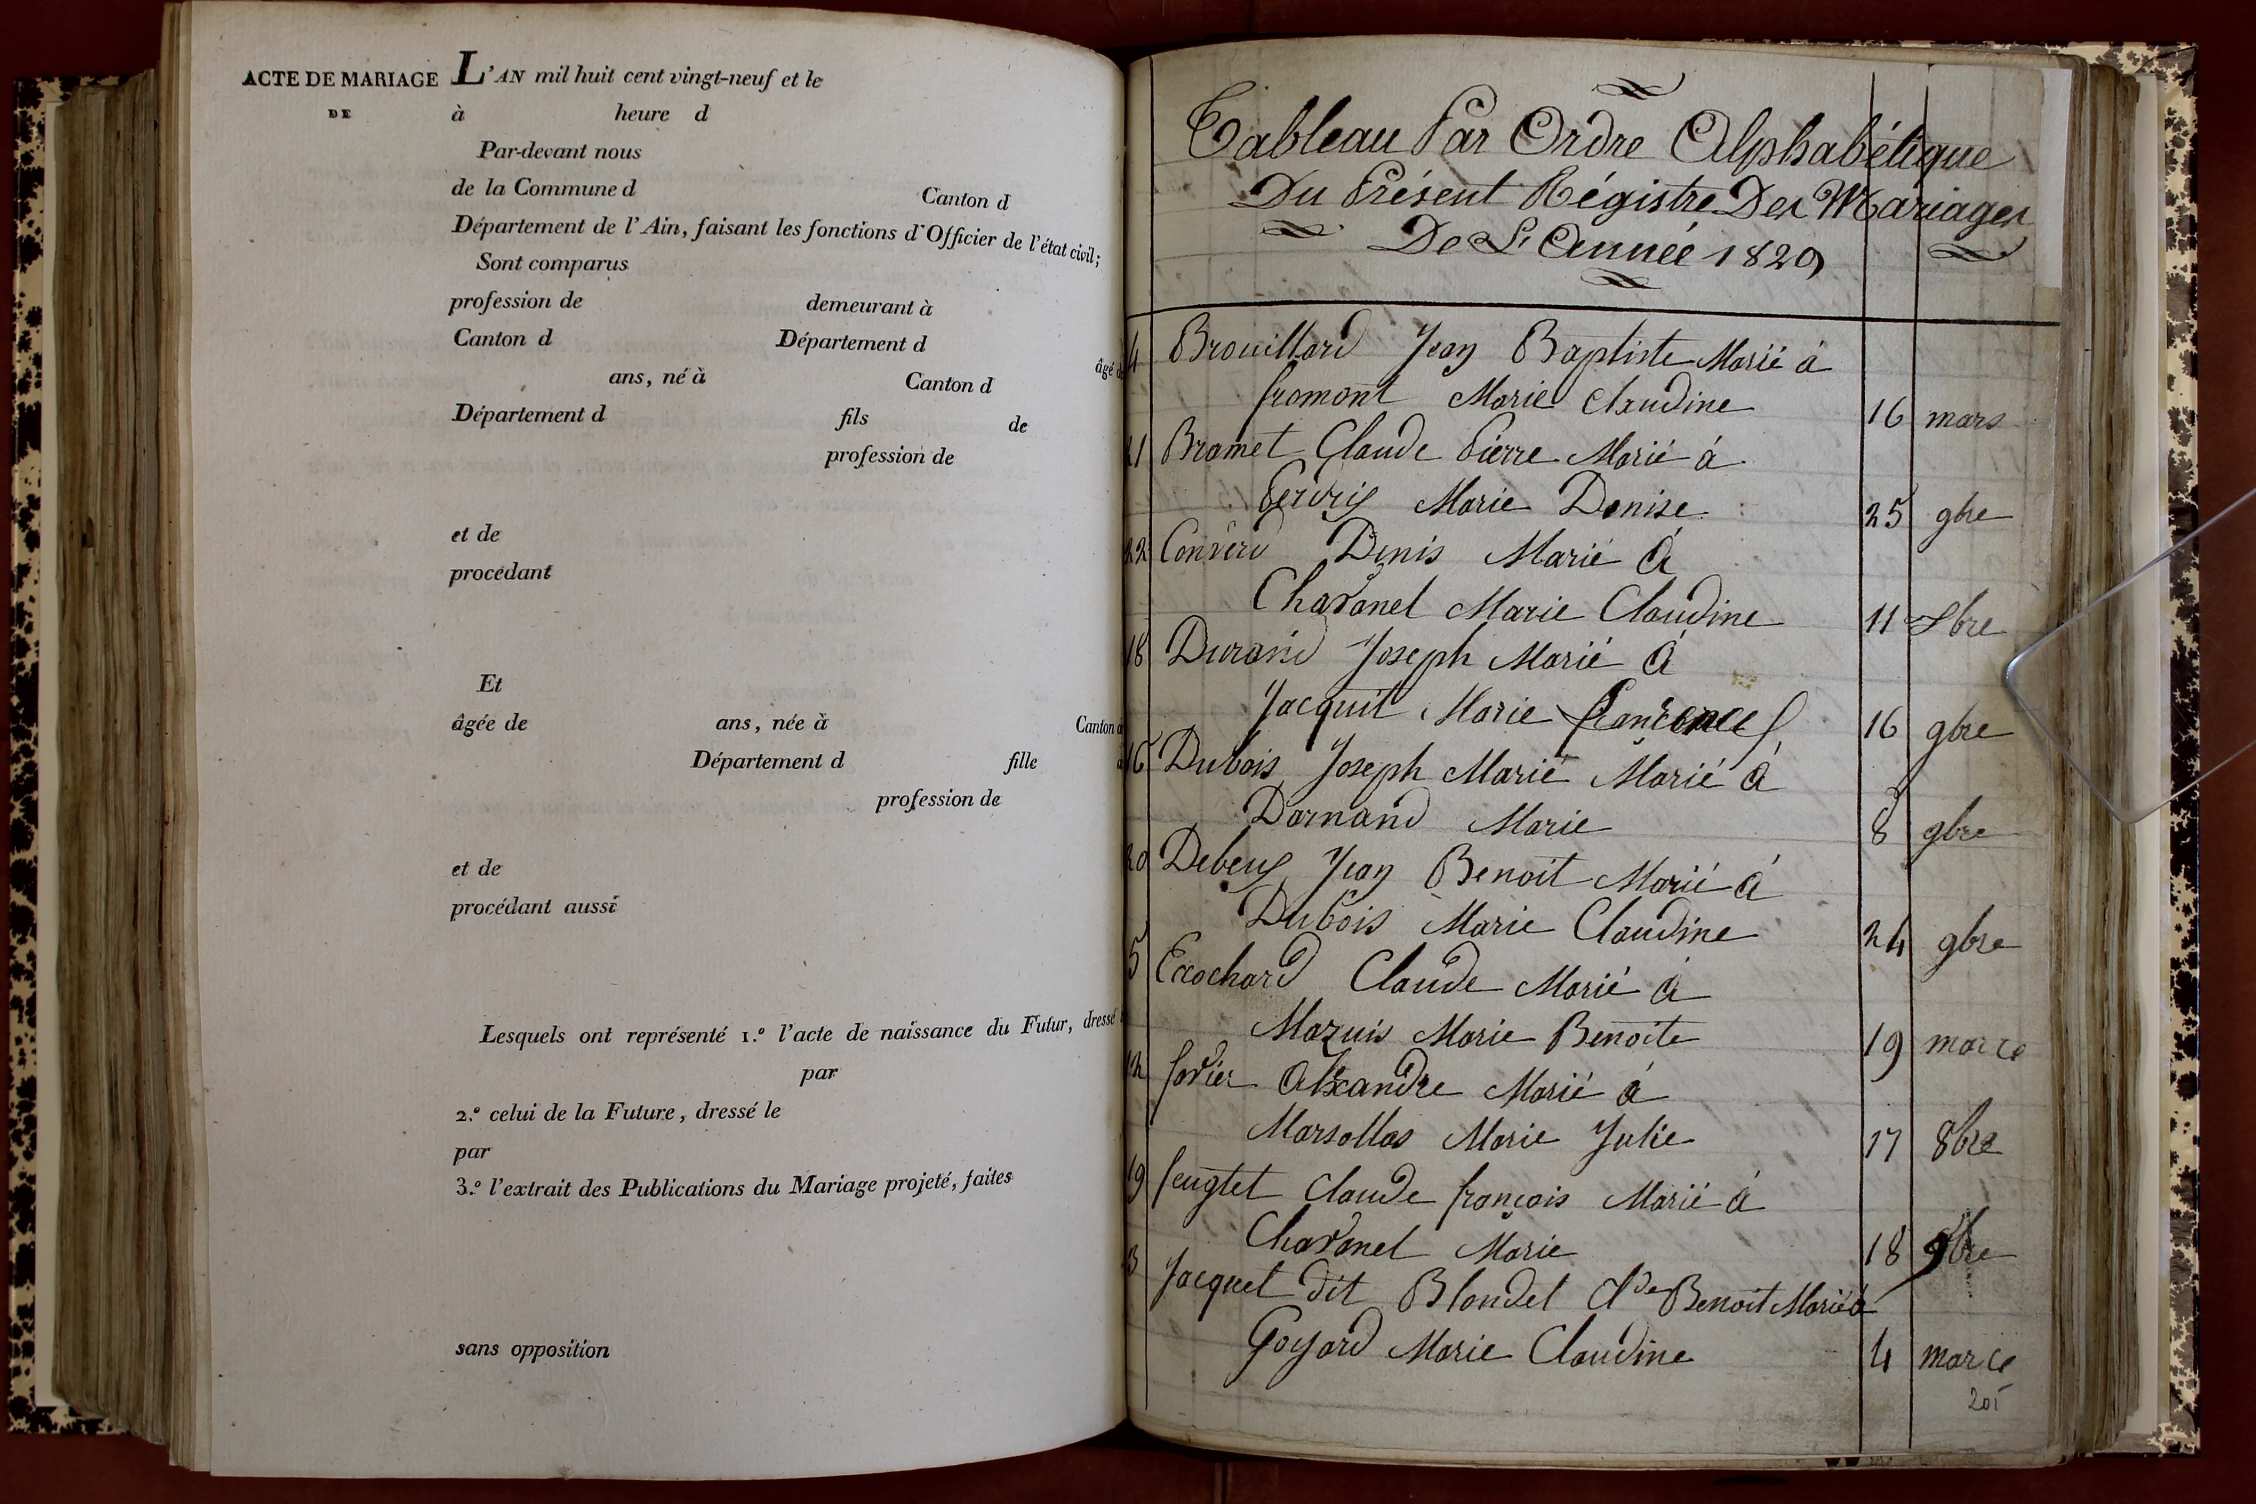 ACTE DE MARIAGE L'AN mil huit cent vingt-neuf et le
DE à heure d
Par-devant nous
de la Commune d Canton d
Département de l'Ain, faisant les fonctions d'Officier de l'état civil;
Sont comparus
profession de demeurant à
Canton d Département d
âgé de
ans, né à Canton d
Département d fils de
profession de
et de
procédant
Et
âgée de ans, née à Canton d
Département d fille
profession de
et de
procédant aussi
Lesquels ont représenté 1.º l'acte de naissance du Futur, dressé
par
2.º celui de la Future, dressé le
par
3.º l'extrait des Publications du Mariage projeté, faites
sans opposition
Tableau Par Ordre Alphabétique
Du Présent Régistre Des Mariages
De L'Année 1829
4 Brouillard Jean Baptiste Marié à
fromont Marie Claudine 16 mars
21 Bramet Claude Pierre Marié á
Marie Denise 25 9bre
22 Convers Denis Marié à
Chavanel Marie Claudine 11 Xbre
18 Durand Joseph Marié à
Jacquet Marie 16 9bre
16 Dubois Joseph Marie Marié à
Darnand Marie 8 9bre
20 Debeny Jean Benoit Marié á
Dubois Marie Claudine 24 9bre
5 Ecochard Claude Marié à
Mazuis Marie Benoite 19 mars
12 favier Alexandre Marié á
Marsollas Marie Julie 17 8bre
19 feugtet Claude françois Marié á
Chavanel Marie 18 9bre
3 Jacquet dit Blondel Cde Benoit Marié á
Goyard Marie Claudine 4 mars
201